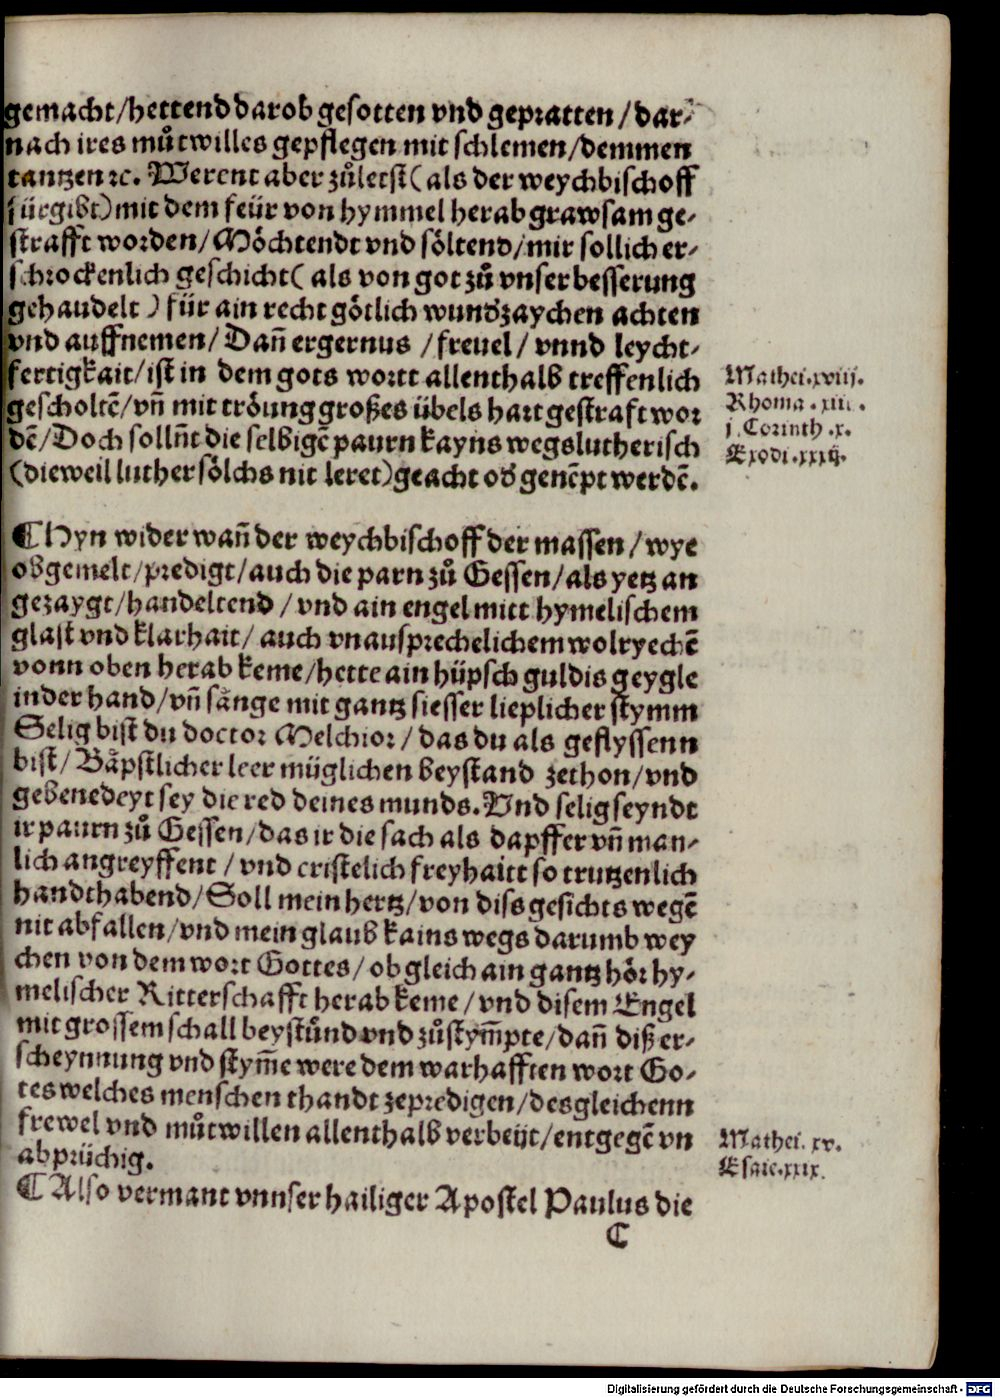 gemacht/hettend darob gesotten vnd gepratten/dar-
nach ires můtwilles gepflegen mit schlemen/demmen
tantzen ꝛc. Werent aber zůletst(als der weychbischoff
fürgibt)mit dem feür von hymmel herab grawsam ge-
strafft worden/Möchtendt vnd söltend/mir sollich er-
schrockenlich geschicht(als von got zů vnser besserung
gehaudelt) für ain recht götlich wundzaychen achten
vnd auffnemen/Dañ ergernus /freuel/ vnnd leycht-
fertigkait/ist in dem gots wortt allenthalb treffenlich
gescholtē/vñ mit tröung großes übels hart gestraft wor
dē/Doch sollñt die selbigē paurn kayns wegs lutherisch
(dieweil luther sölchs nit leret)geacht od genēpt werdē.
Mathei.xviij.
Rhoma.xiii.
j.Corinth.x.
Exodi.xxxij.
¶Hyn wider wañ der weychbischoff der massen/wye
obgemelt/predigt/auch die parn zů Gessen/als yetz an
gezaygt/handeltend/vnd ain engel mitt hymelischem
glast vnd klarhait/auch vnausprechelichem wolryechē
vonn oben herab keme/hette ain hüpsch guldis geygle
in der hand/vñ sänge mit gantz siesser lieplicher stymm
Selig bist du doctor Melchior/das du als geflyssenn
bist/Bäpstlicher leer müglichen beystand zethon/vnd
gebenedeyt sey die red deines munds.Vnd selig seyndt
ir paurn zů Gessen/das ir die sach als dapffer vñ man-
lich angreyffent/vnd cristelich freyhaitt so trutzenlich
handthabend/Soll mein hertz/von dis gesichts wegē
nit abfallen/vnd mein glaub kains wegs darumb wey
chen von dem wort Gottes/ob gleich ain gantz hör hy-
melischer Ritterschafft herab keme/vnd disem Engel
mit grossem schall beystůnd vnd zůstym̃pte/dañ diß er-
scheynnung vnd stym̃e were dem warhafften wort Go-
tes welches menschen thandt zepredigen/desgleichenn
frewel vnd můtwillen allenthalb verbeüt/entgegē vn
abprüchig.
Mathei.xv.
Esaie.xxix.
¶Also vermant vnnser hailiger Apostel Paulus die
C
Digitalisierung gefördert durch die Deutsche Forschungsgemeinschaft - DFG